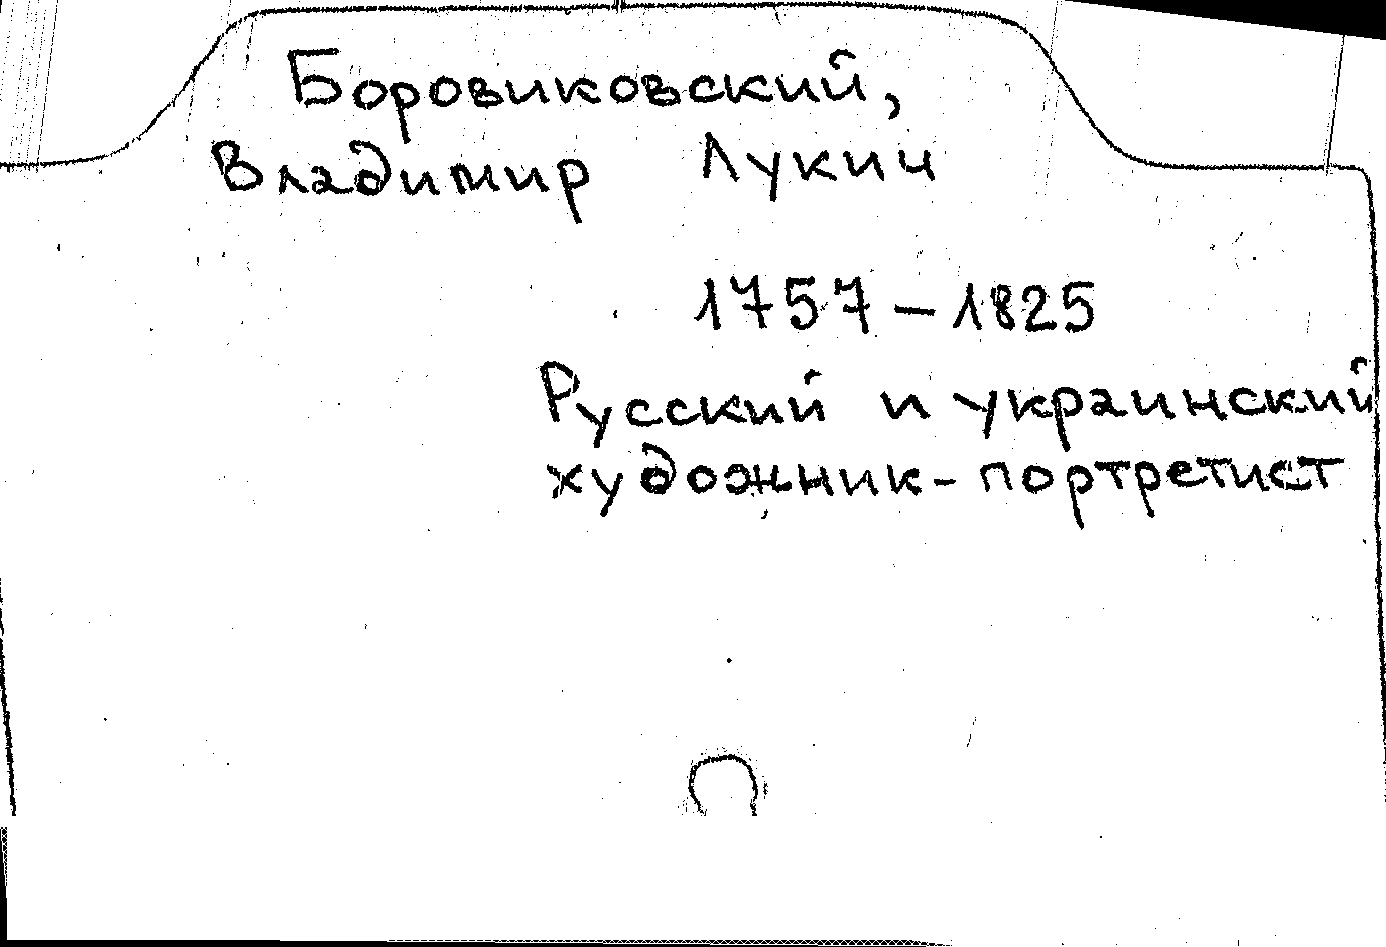 Боровиковский,
Владимир Лукич
1757 – 1825
Русский и украинский
художник - портретист